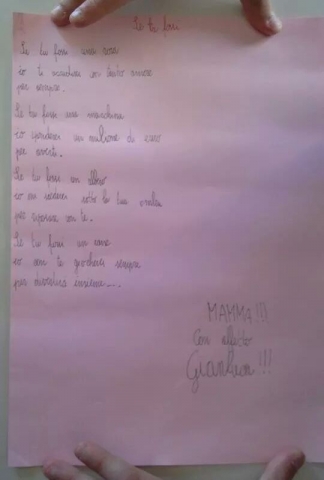 Se tu fossi
Se tu fossi una rosa
io ti scalderei con tanto amore
per sempre.
Se tu fossi una macchina
io spenderei un milione di euro
per averti.
Se tu fossi un albero
io mi siederei sotto la tua ombra
per riposare con te.
Se tu fossi un cane
io con te giocherei sempre
per divertirci insieme....
MAMMA!!!
Con affetto
Gianluca!!!